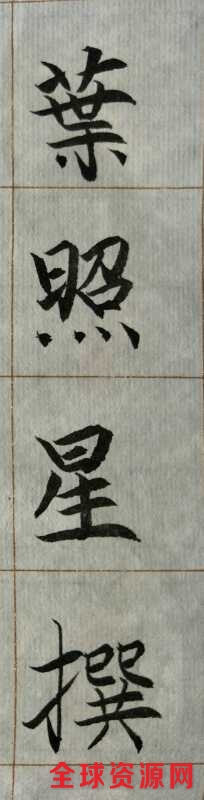 葉照星撰
全球资源网